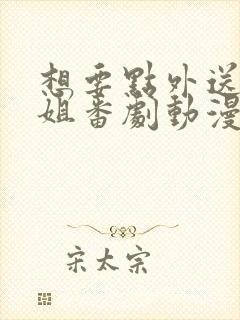 想要點外送
姐番劇動漫
宋太宗